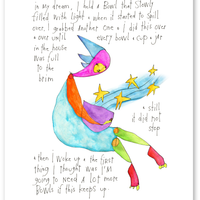 in my dream, I held a Bowl that slowly
filled with light • when it started to spill
over, I grabbed another one • I did this over
• over until every bowl • cup • jar
in the house
was full
to the
brim
• still
it did not
stop
• then I woke up • the first
thing I thought was I'm
going to need a lot more
Bowls if this keeps up